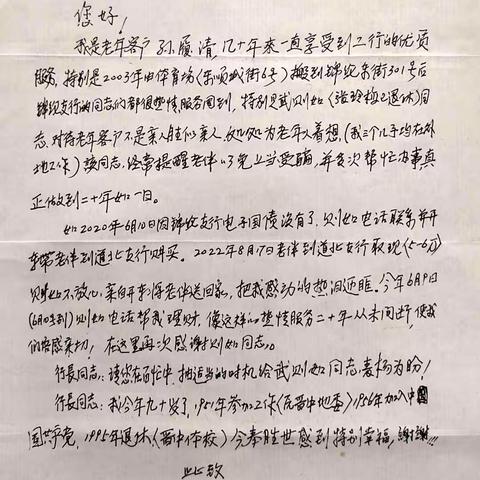 您好！
我是老年客户孙履清，几十年来一直享受到工行的优质
服务，特别是2003年由体育场（东顺城街6号）搬到锦纶东街301号后
锦纶支行的同志们都很热情，服务周到，特别是武则如（张玲相已退休）同
志，对待老年客户不是亲人胜似亲人，处处为老年人着想，（我三个儿子均在外
地工作）该同志，经常提醒老伴以免上当受骗，并多次帮忙办事真
正做到二十年如一日。
如2020年6月10日因锦纶支行电子国债没有了，则如电话联系并开
车带老伴到道北支行购买。2022年8月17日老伴到道北支行取现（5-6万）
则如不放心，亲自开车将老伴送回家，把我感动的热泪还眶。今年6月9日
（6月10到）则如电话帮我理财，像这样的热情服务二十年从未间断，使我
们倍感亲切，在这里再次感谢则如同志。
行长同志：请您在百忙中抽适当的时机给武则如同志表扬为盼！
行长同志：我今年九十岁了，1951年参加工作（原晋中地委）1956年加入中
国共产党，1995年退休（晋中体校）今奉胜世感到特别幸福，谢谢!!!
此致